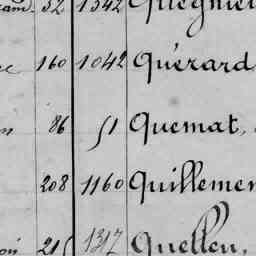 52 1342 Quegnie
160 1042 Quérard
86 51 Quemat,
208 1160 Quillemen
215 1317 Quellen,